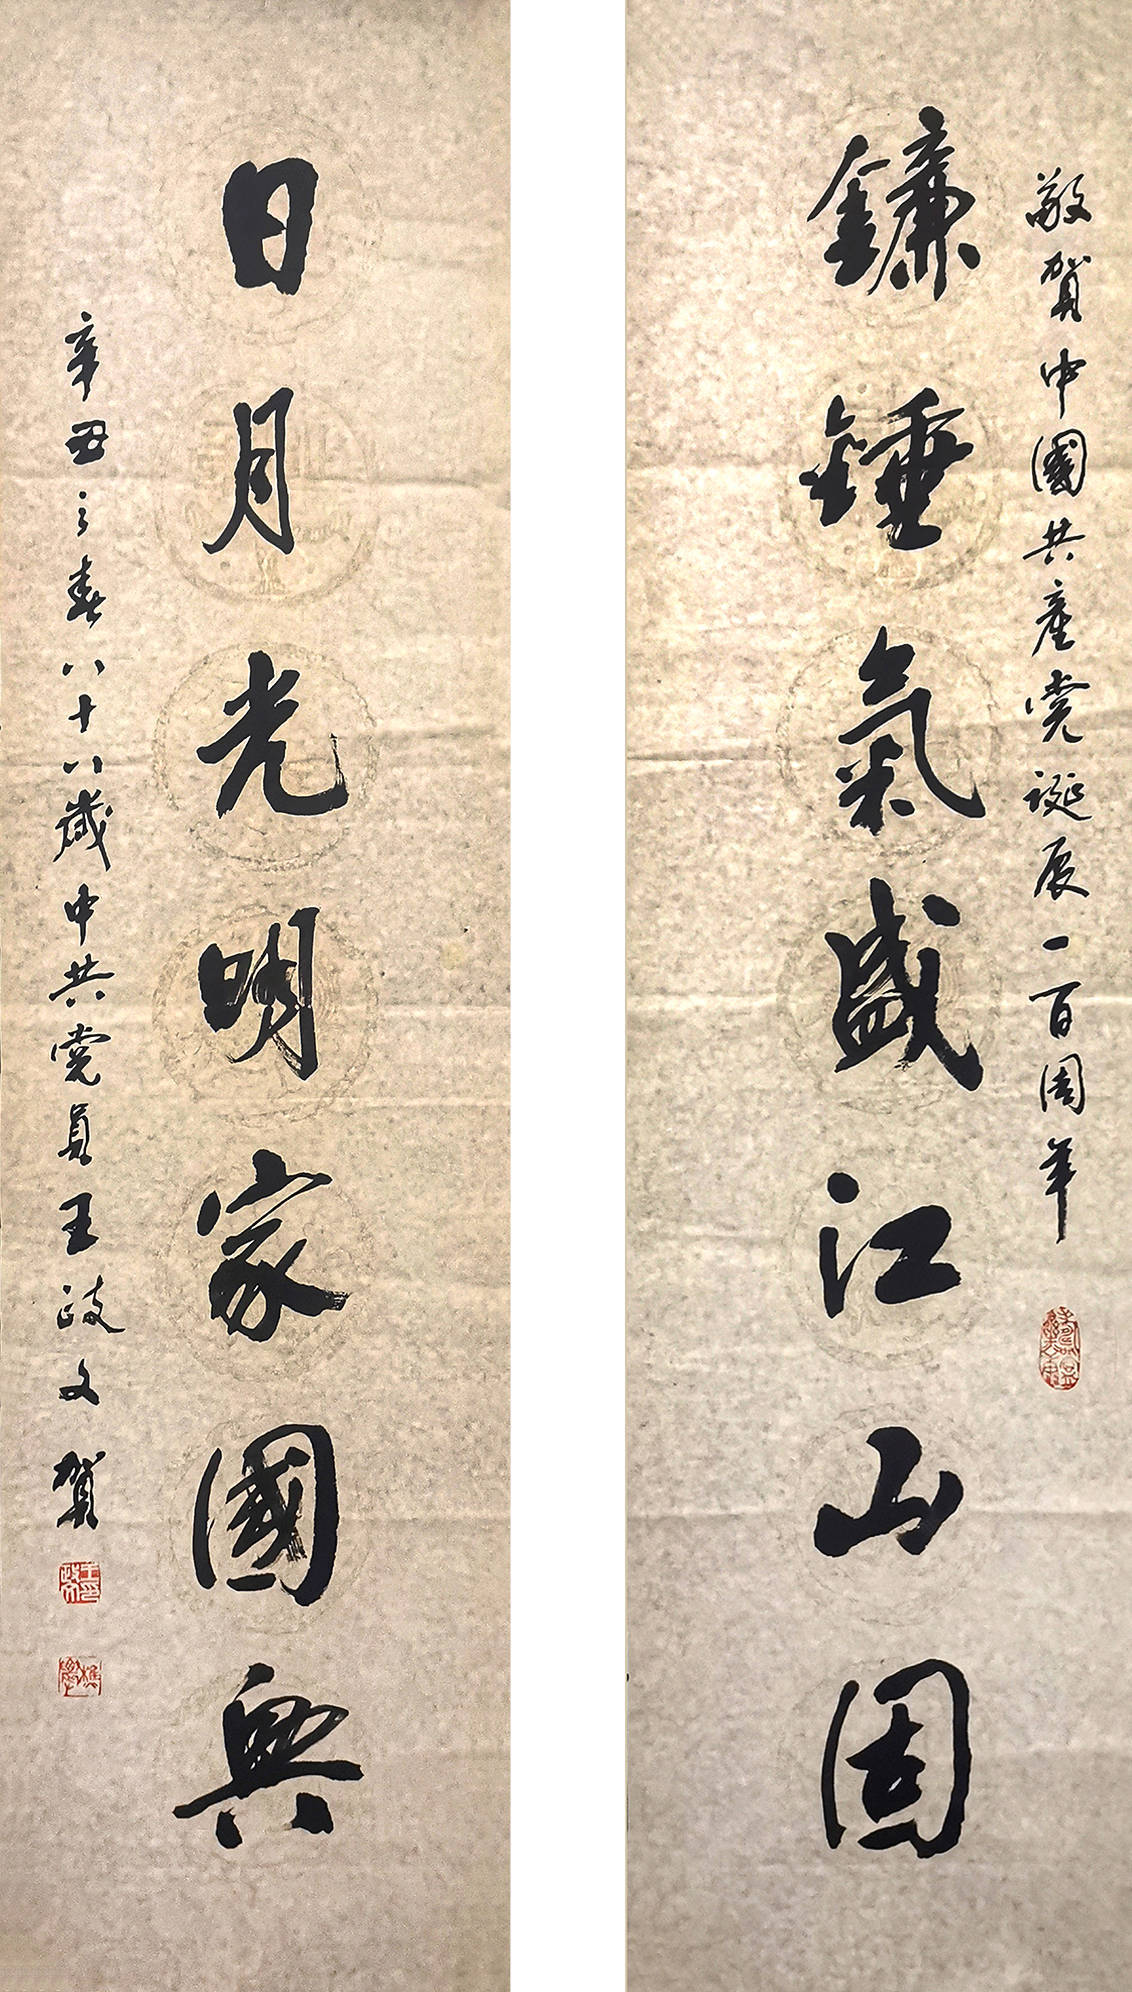 敬賀中國共產党誕辰一百周年
鐮錘氣盛江山固
日月光明家國興
辛丑之春八十八歲中共党員王政文賀